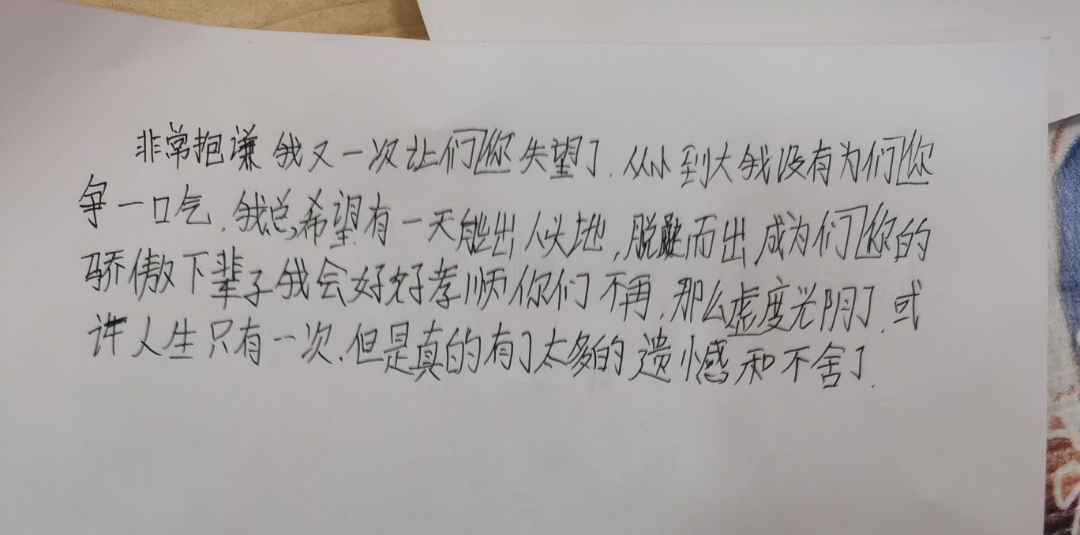 非常抱谦我又一次让们你失望了.从小到大我没有为们你
争一口气.我总希望有一天能出人头地,脱颖而出,成为们你的
骄傲下辈子我会好好孝顺你们不再,那么虚度光阴了.或
许人生只有一次.但是真的有了太多的遗憾和不舍了.